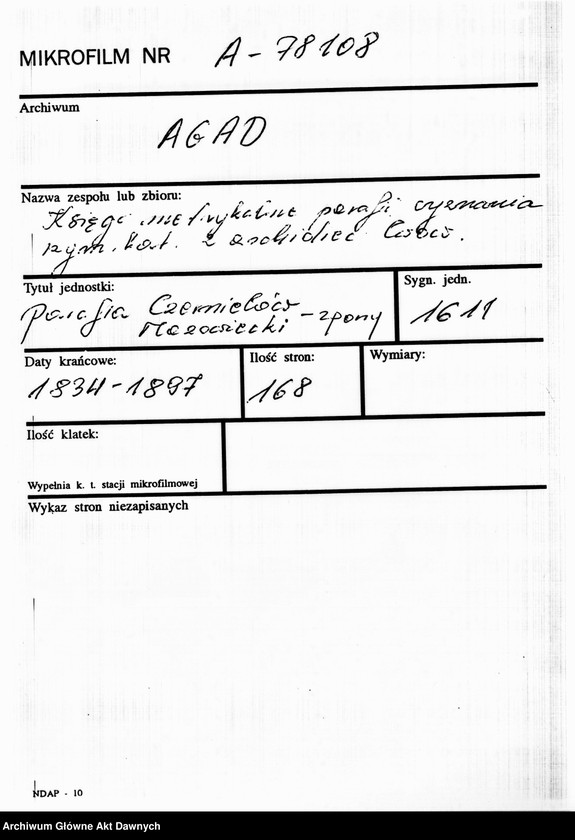 MIKROFILM NR A-78108
Archiwum
AGAD
Nazwa zespołu lub zbioru:
Księgi metrykalne parafii wyznania
rzym. kat. z archidiec Lwów.
Tytuł jednostki:
Parafia Czernielów
Mazowiecki - zgony
Sygn. jedn.
1611
Daty krańcowe:
1834-1897
Ilość stron:
168
Wymiary:
Ilość klatek:
Wypełnia k. t. stacji mikrofilmowej
Wykaz stron niezapisanych
NDAP - 10
Archiwum Główne Akt Dawnych